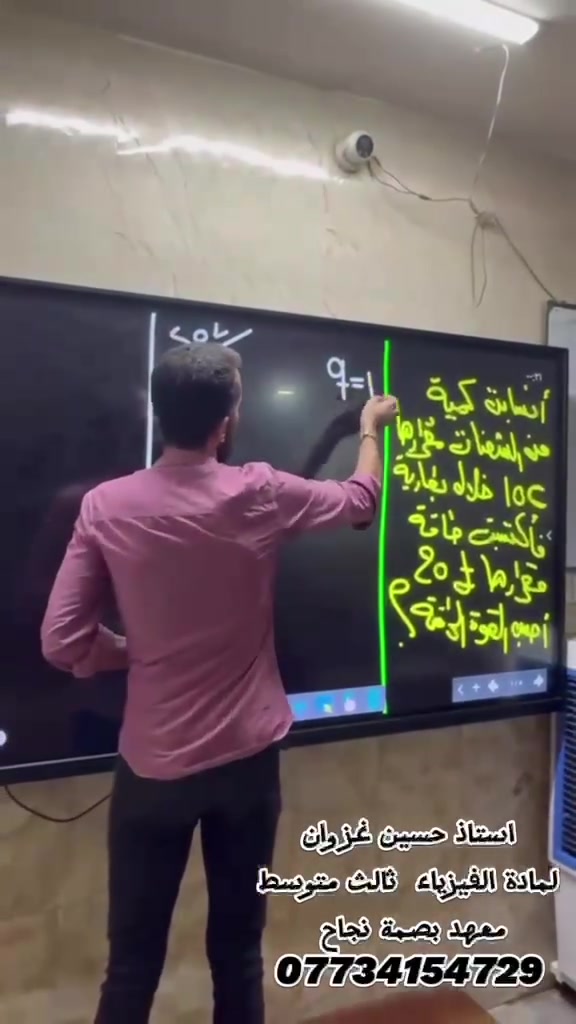 أنسابت كمية
من الشحنات مقدارها
10C خلال بطارية
فأكتسبت طاقة
مقدارها 20J
أحسب القوة الدافعة؟
sol
q=1
استاذ حسين غزوان
لمادة الفيزياء ثالث متوسط
معهد بصمة نجاح
07734154729